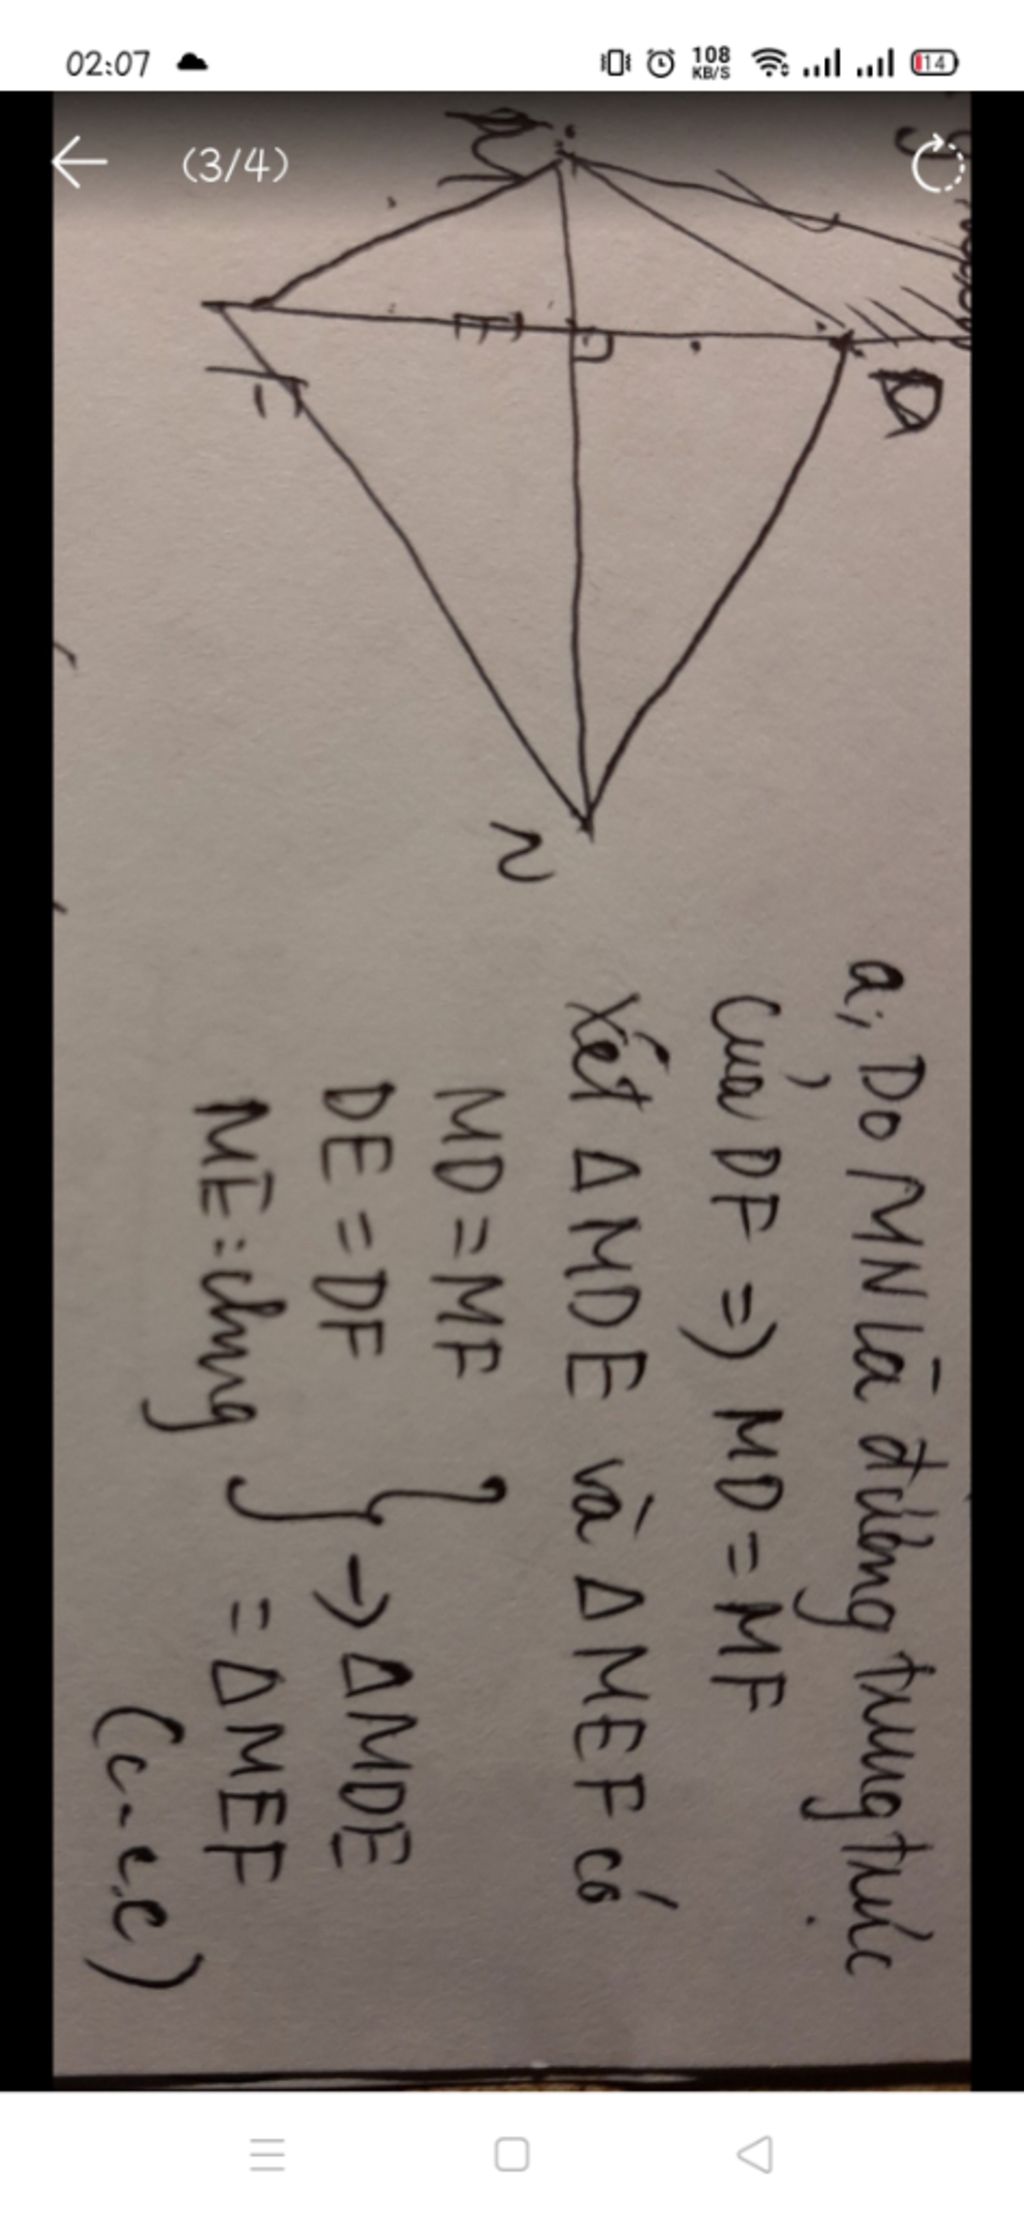 02:07
108
KB/S
14
(3/4)
D
E
F
N
a; Do MN là đường trung trực
của DF => MD = MF
Xét Δ MDE và Δ MEF có
MD = MF
DE = DF
ME: chung
} → Δ MDE
= Δ MEF
(c-c.c)